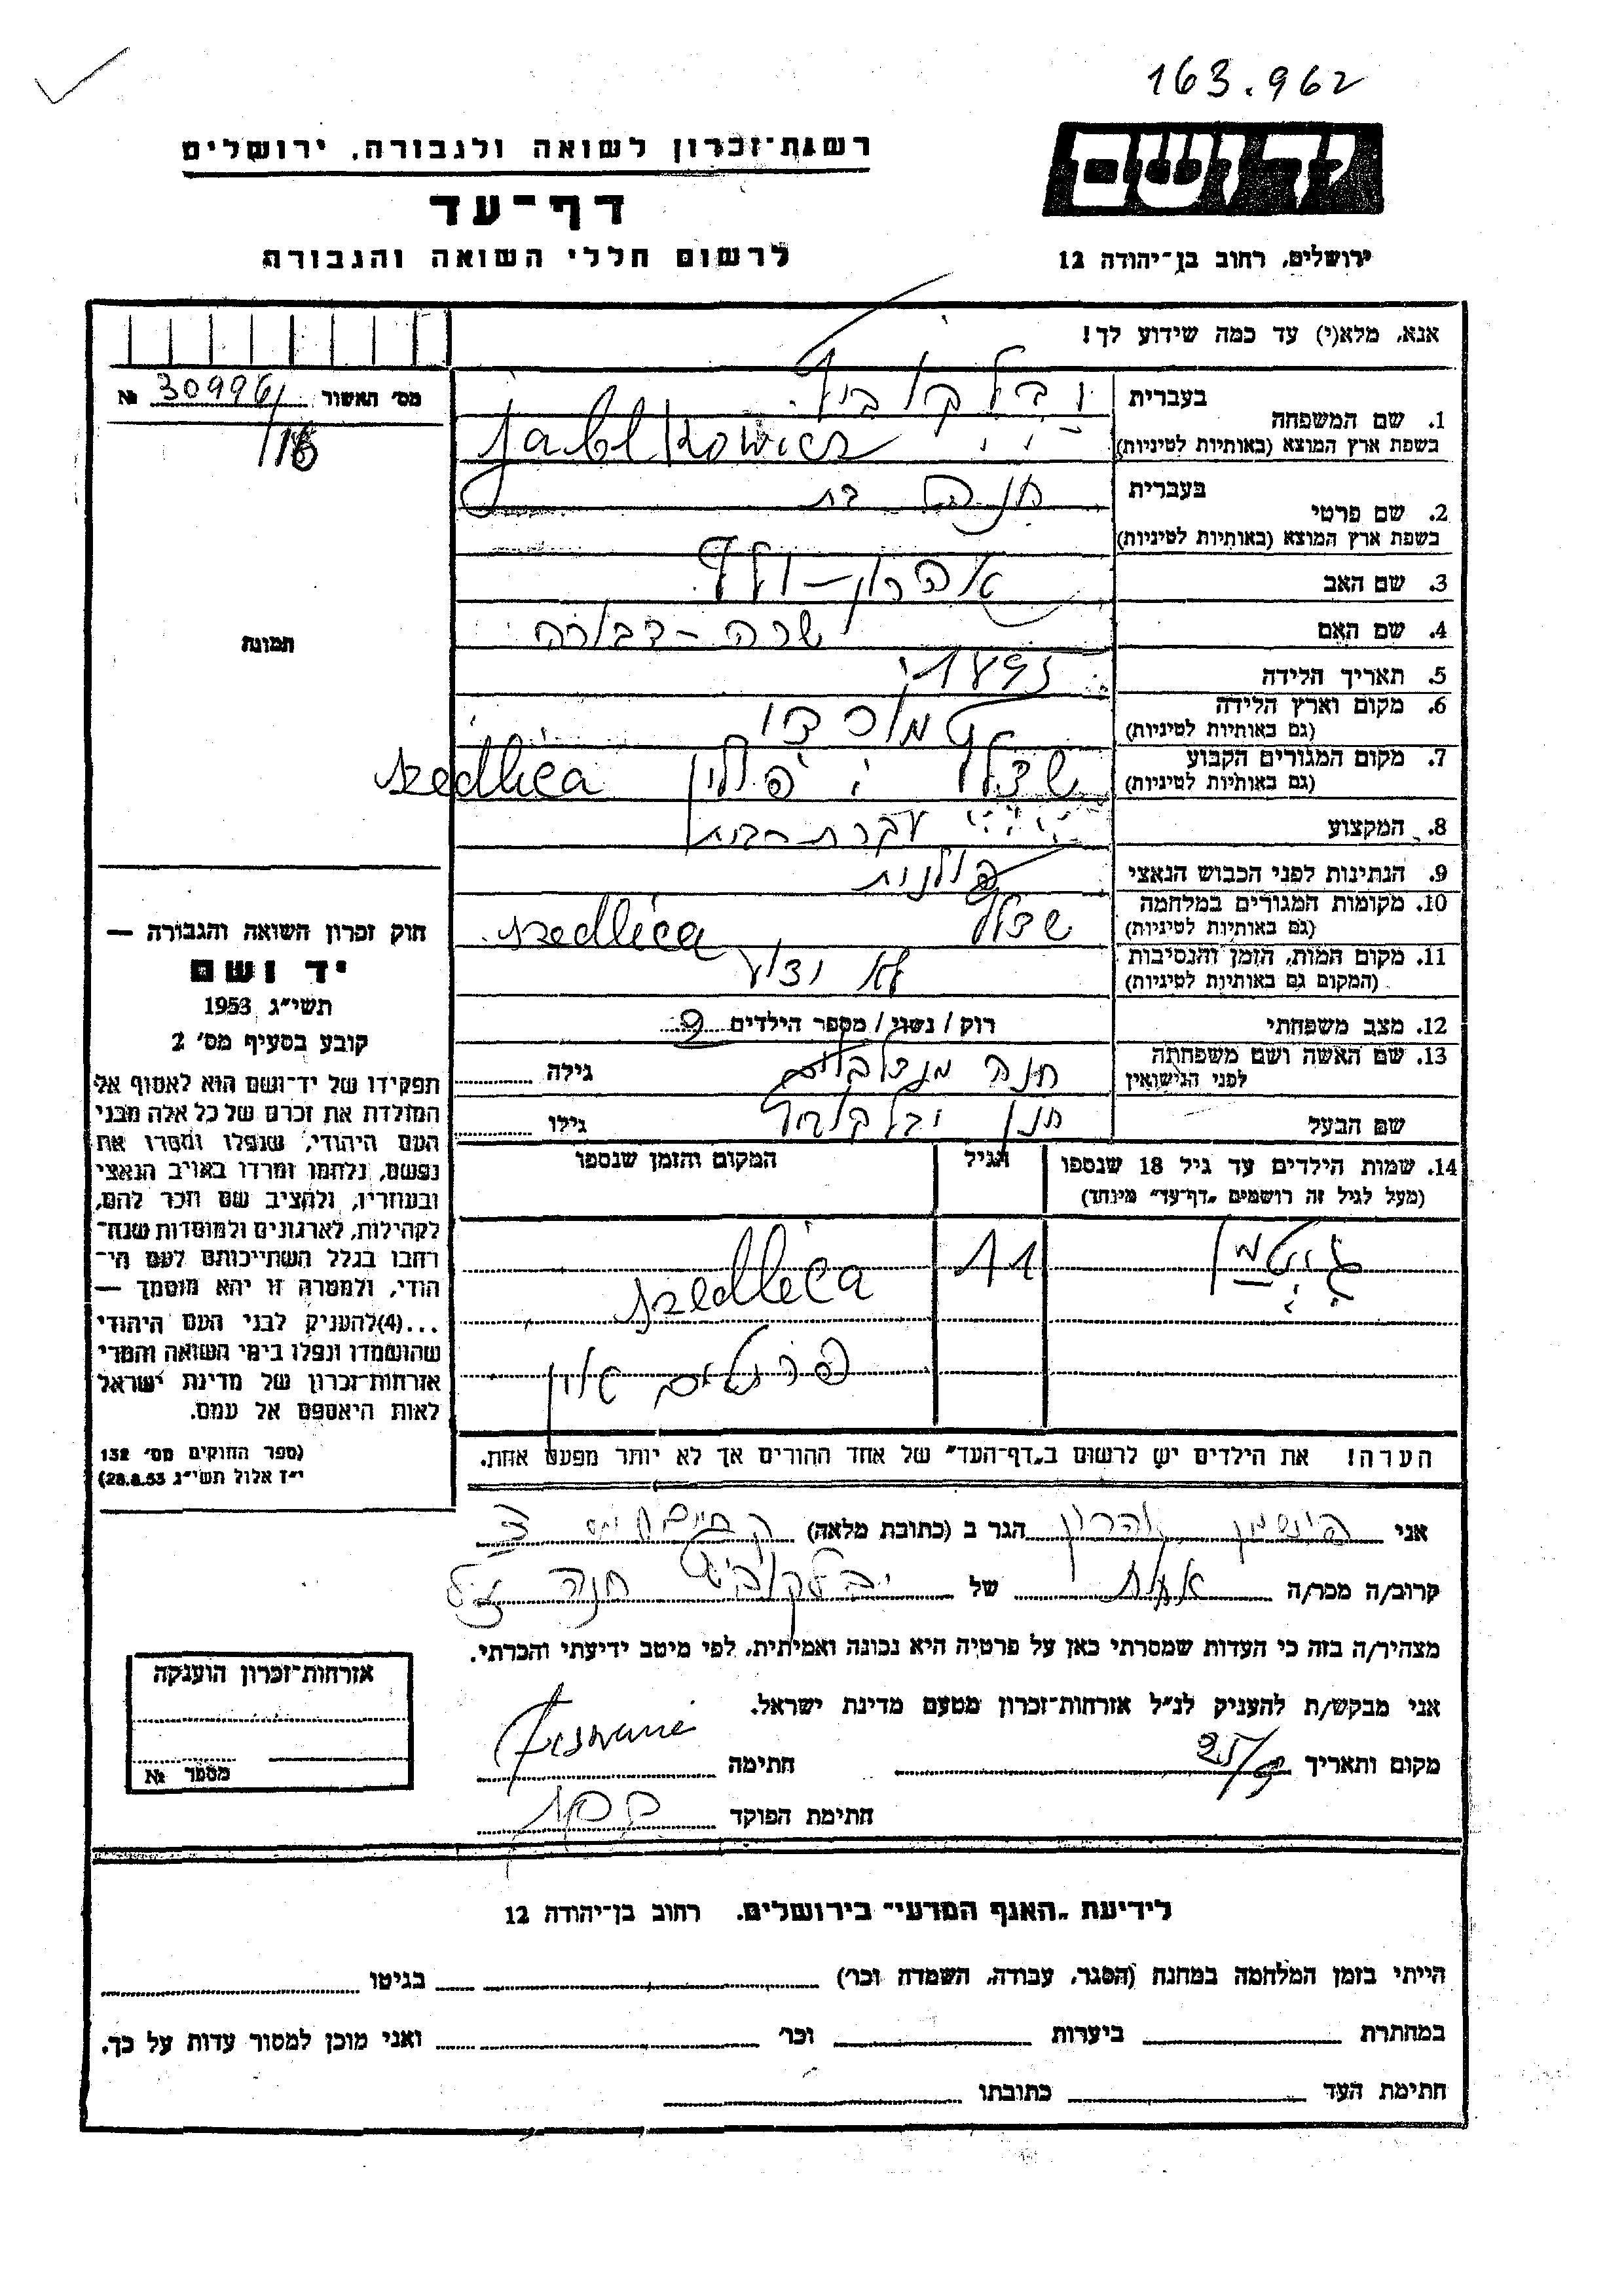 163.962
ידושם
רשות־זכרון לשואה ולגבורה, ירושלים
דף־עד
לרשום חללי השואה והגבורה
ירושלים, רחוב בן־יהודה 12
אנא, מלא(י) עד כמה שידוע לך!
מס׳ האשור 309961 №
/16
תמונה
1. שם המשפחה
בעברית יבלקוביץ
בשפת ארץ המוצא (באותיות לטיניות) Jablkowicz
2. שם פרטי
בעברית חנה בת
בשפת ארץ המוצא (באותיות לטיניות)
3. שם האב אהרון-וולף
4. שם האם שרה-דבורה
5. תאריך הלידה 1895
6. מקום וארץ הלידה
(גם באותיות לטיניות)
7. מקום המגורים הקבוע
(גם באותיות לטיניות) שדלץ פולין szedlica
8. המקצוע עקרת בית
9. הנתינות לפני הכבוש הנאצי פולנית
10. מקומות המגורים במלחמה
(גם באותיות לטיניות) שדלץ szedlica
11. מקום המות, הזמן והנסיבות
(המקום גם באותיות לטיניות) לא ידוע
12. מצב משפחתי רוק / נשוי / מספר הילדים 2
13. שם האשה ושם משפחתה
לפני הנישואין חנה מנדלבוים גילה
שם הבעל חנן יבלקוביץ גילו
14. שמות הילדים עד גיל 18 שנספו
(מעל לגיל זה רושמים „דף־עד״ מיוחד)
הגיל
המקום והזמן שנספו
11 szedlica
פרטים אין
הערה! את הילדים יש לרשום ב„דף־העד״ של אחד ההורים אך לא יותר מפעם אחת.
חוק זכרון השואה והגבורה —
יד ושם
תשי״ג 1953
קובע בסעיף מס׳ 2
תפקידו של יד־ושם הוא לאסוף אל
המולדת את זכרם של כל אלה מבני
העם היהודי, שנפלו ומסרו את
נפשם, נלחמו ומרדו באויב הנאצי
ובעוזריו, ולהציב שם וזכר להם,
לקהילות, לארגונים ולמוסדות שנח־
רחבו בגלל השתייכותם לעם הי־
הודי, ולמטרה זו יהא מוסמך —
...(4)להעניק לבני העם היהודי
שהושמדו ונפלו בימי השואה והמרי
אזרחות־זכרון של מדינת ישראל
לאות היאספם אל עמם.
(ספר החוקים מס׳ 132
י״ז אלול תשי״ג 28.8.53)
אני פישמן אהרון הגר ב (כתובת מלאה)
קרוב/ה מכר/ה אחות של יבלקוביץ חנה ז״ל
מצהיר/ה בזה כי העדות שמסרתי כאן על פרטיה היא נכונה ואמיתית, לפי מיטב ידיעתי והכרתי.
אני מבקש/ת להעניק לנ״ל אזרחות־זכרון מטעם מדינת ישראל.
מקום ותאריך 25/5 חתימה
חתימת הפוקד
אזרחות־זכרון הוענקה
מספר №
לידיעת „האגף המדעי״ בירושלים, רחוב בן־יהודה 12
הייתי בזמן המלחמה במחנה (הסגר, עבודה, השמדה וכר׳) בגיטו
במחתרת ביערות וכר׳ ואני מוכן למסור עדות על כך.
חתימת העד כתובתו